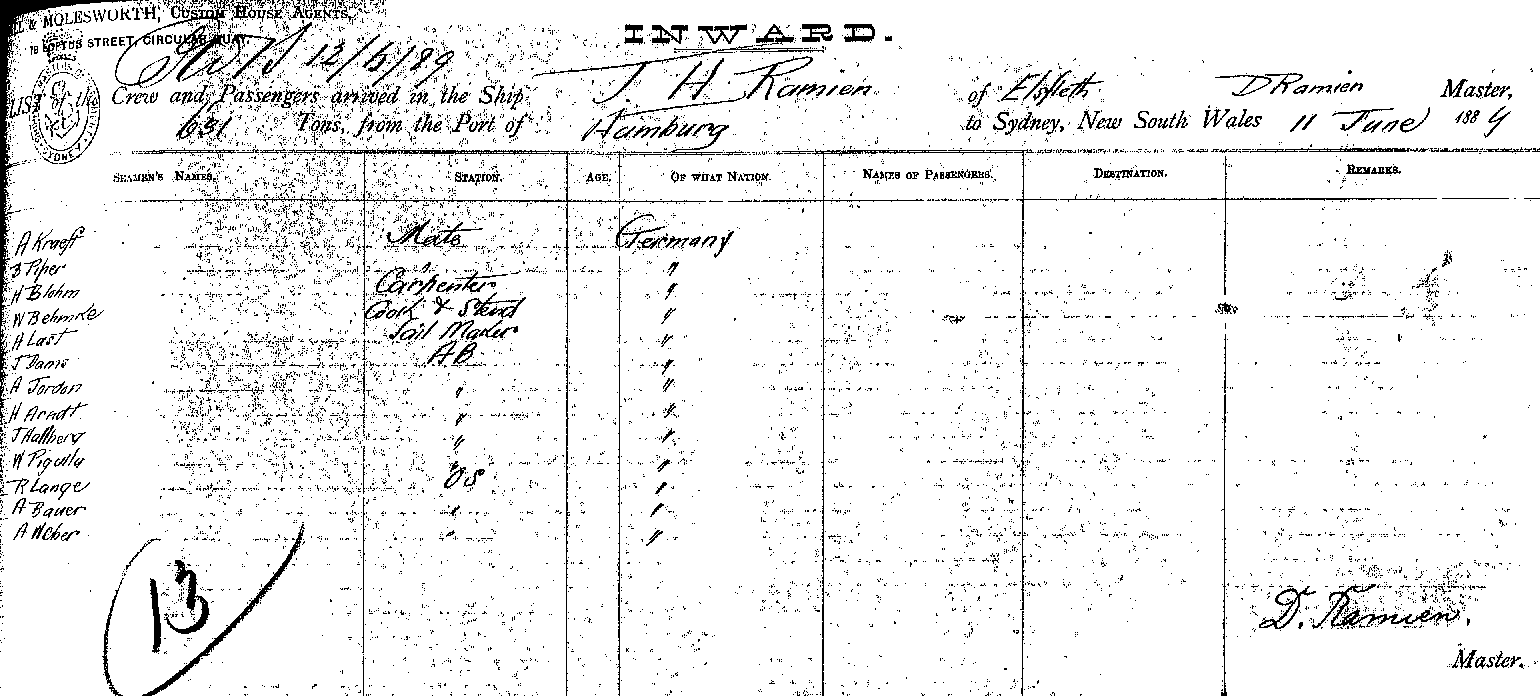 LL & MOLESWORTH, CUSTOM HOUSE AGENTS,
18 LOFTUS STREET, CIRCULAR QUAY.
INWARD.
12/6/89
LIST of the Crew and Passengers arrived in the Ship J. H Ramien of Elsfleth D Ramien Master,
631 Tons, from the Port of Hamburg to Sydney, New South Wales 11 June 1889
SEAMEN'S NAMES. STATION. AGE. OF WHAT NATION. NAMES OF PASSENGERS. DESTINATION. REMARKS.
A Kraeft Mate Germany
B Piper " "
H Blohm Carpenter "
W Behmke Cook & Steward "
A Last Sail Maker "
J Dams AB "
A Jordan " "
H Arndt " "
J Hallberg " "
W Pigulla " "
R Lange OS "
A Bauer " "
A Weber " "
13
D. Ramien.
Master.